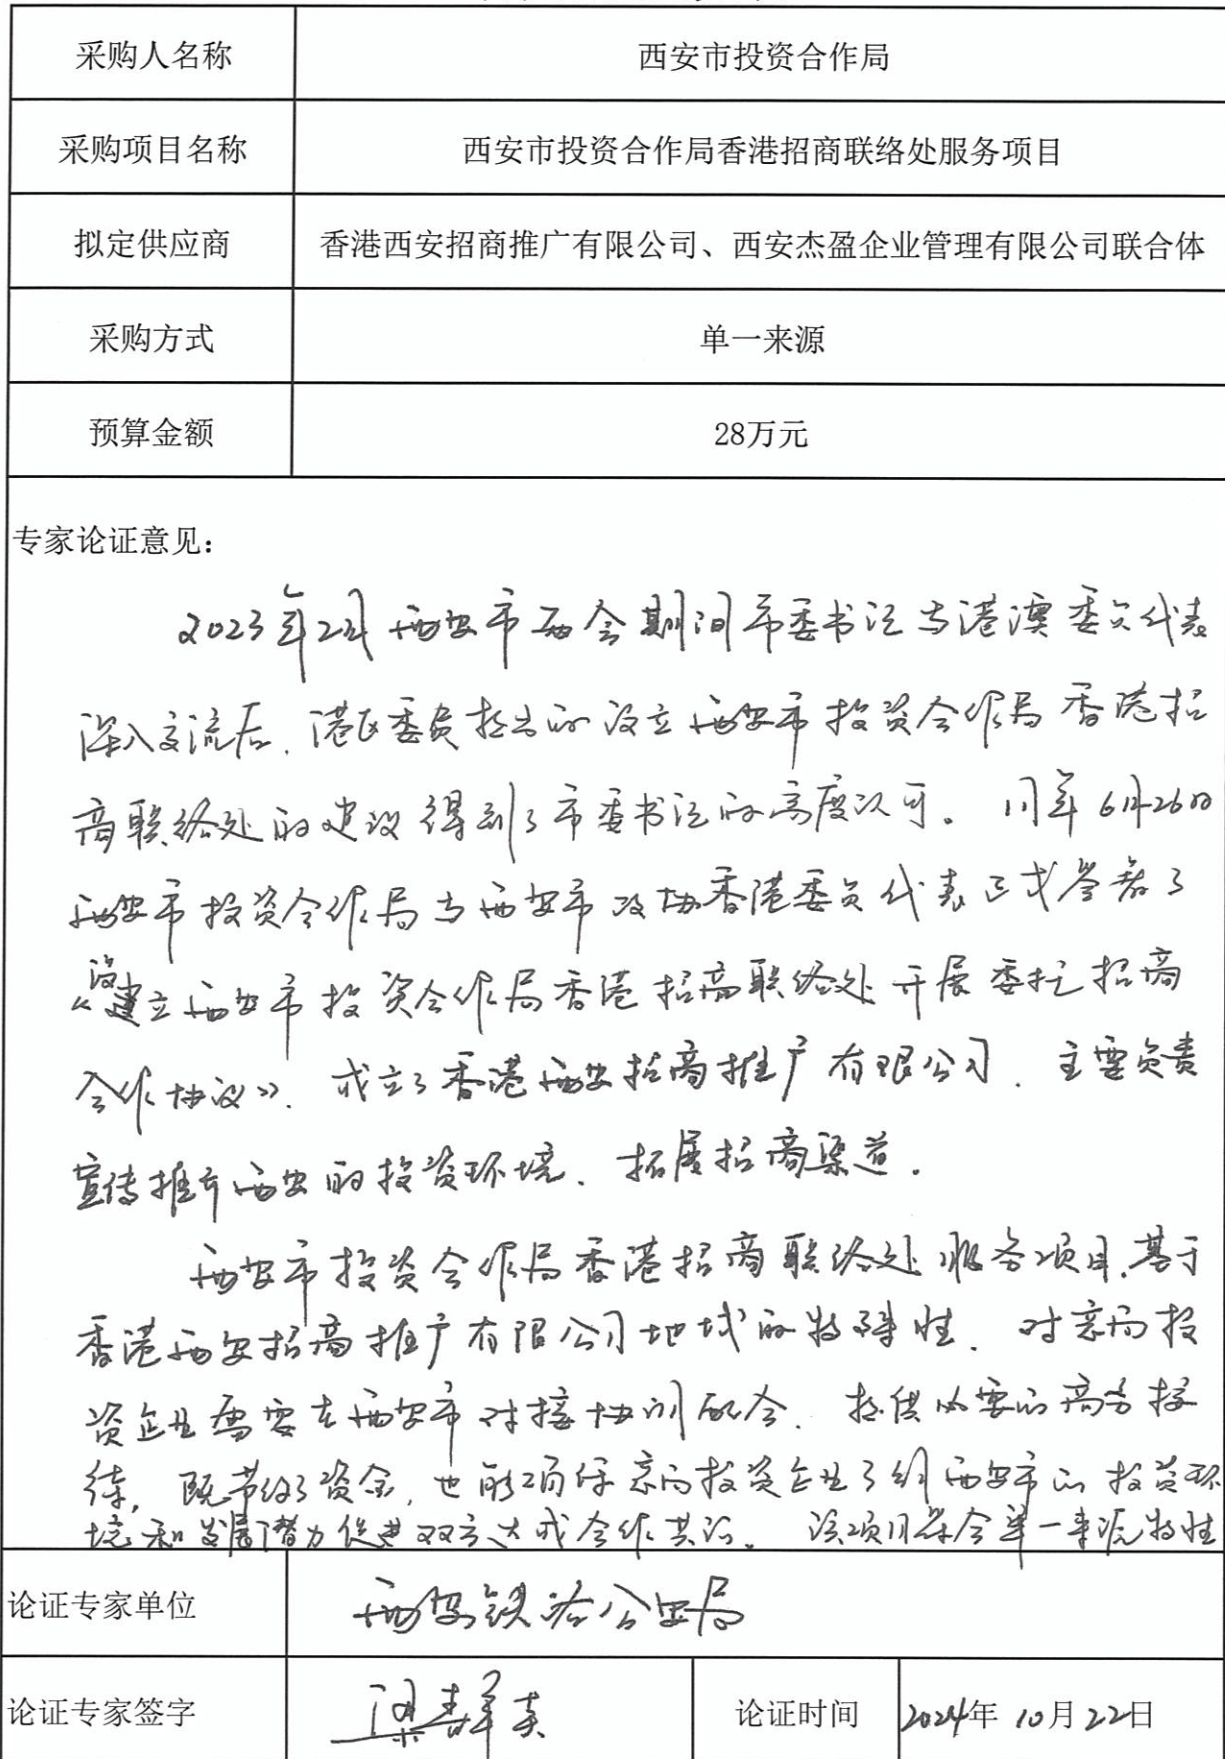 采购人名称 西安市投资合作局
采购项目名称 西安市投资合作局香港招商联络处服务项目
拟定供应商 香港西安招商推广有限公司、西安杰盈企业管理有限公司联合体
采购方式 单一来源
预算金额 28万元
专家论证意见：
2023年2月西安市两会期间市委书记与港澳委员代表
深入交流后，港区委员提出的设立西安市投资合作局香港招
商联络处的建议得到了市委书记的高度认可。同年6月26日
西安市投资合作局与西安市政协香港委员代表正式签署了
《建设立西安市投资合作局香港招商联络处开展委托招商
合作协议》，成立了香港西安招商推广有限公司，主要负责
宣传推介西安的投资环境、拓展招商渠道。
西安市投资合作局香港招商联络处服务项目，基于
香港西安招商推广有限公司地域的特殊性，对意向投
资企业需要在西安市对接协调配合，提供必要的商务接
待，既节约了资金，也能确保意向投资企业了解西安市的投资环
境和发展潜力促进双方达成合作共识。该项目符合单一来源特性
论证专家单位 西安铁路公安局
论证专家签字 梁 论证时间 2024年10月22日